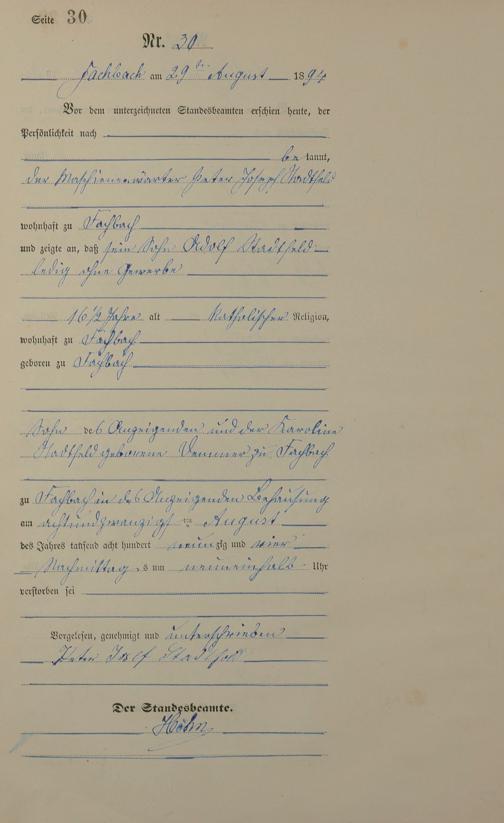 Seite 30
Nr. 30
Fachbach am 29ten August 1894
Vor dem unterzeichneten Standesbeamten erschien heute, der
Persönlichkeit nach
be kannt,
der Maschienenwärter Peter Joseph Stadtfeld
wohnhaft zu Fachbach
und zeigte an, daß sein Sohn Adolf Stadtfeld
ledig ohne Gewerbe
16 1/2 Jahre alt Katholischer Religion,
wohnhaft zu Fachbach
geboren zu Fachbach
Sohn des Anzeigenden und der Karoline
Stadtfeld geborene Vemmer zu Fachbach
zu Fachbach in des Anzeigenden Behausung
am achtundzwanzigsten August
des Jahres tausend acht hundert neunzig und vier
Nachmittags um neuneinhalb Uhr
verstorben sei
Vorgelesen, genehmigt und unterschrieben
Peter Josef Stadtfeld
Der Standesbeamte.
Höhn